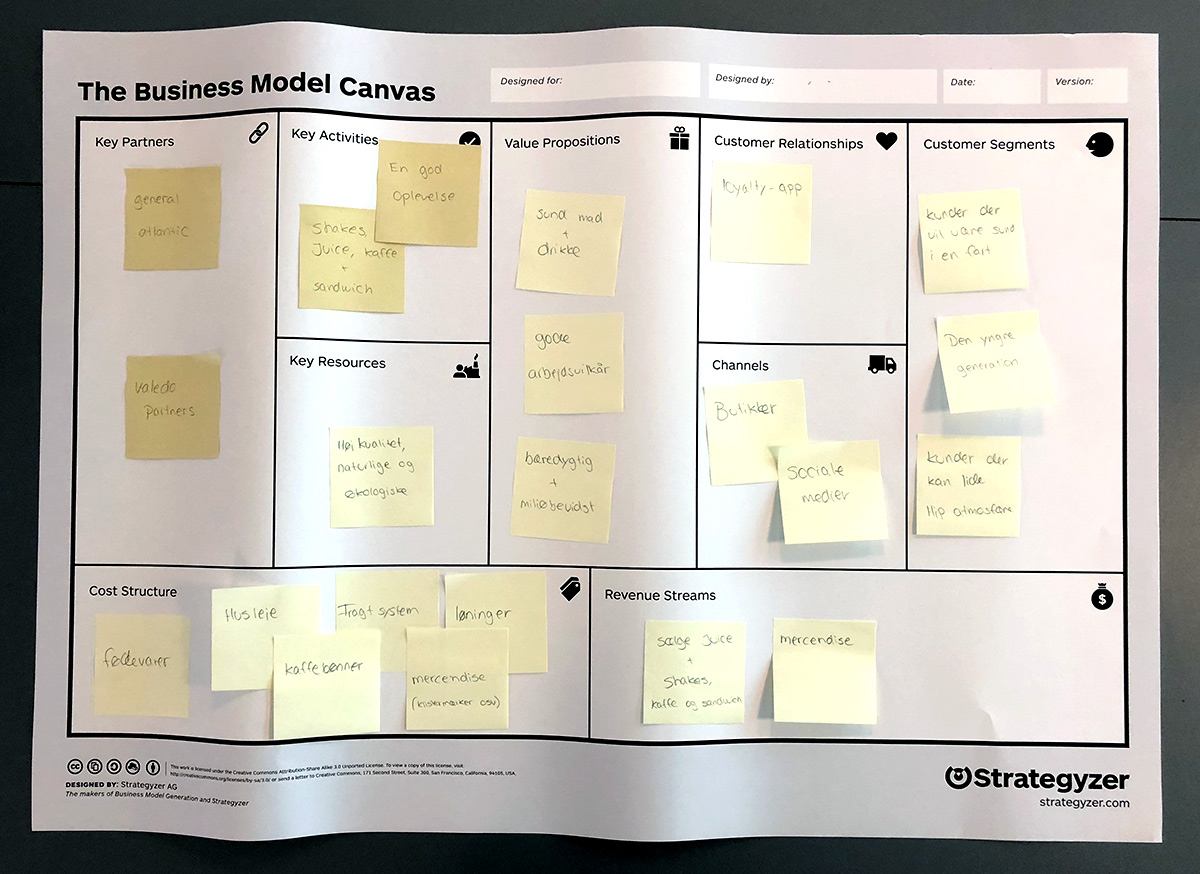 The Business Model Canvas
Designed for:
Designed by:
Date:
Version:
Key Partners
general
atlantic
Valedo
partners
Key Activities
En god
oplevelse
Shakes,
Juice, kaffe
+
sandwich
Key Resources
Høj kvalitet,
naturlige og
økologiske
Value Propositions
Sund mad
+
drikke
gode
arbejdsvilkår
bæredygtig
+
miljøbevidst
Customer Relationships
loyalty-app
Channels
Butikker
Sociale
medier
Customer Segments
kunder der
vil være sund
i en fart
Den yngre
generation
kunder der
kan lide
Hip atmosfære
Cost Structure
fødevarer
Husleje
kaffebønner
Fragt system
løninger
mercendise
(klistermærker osv)
Revenue Streams
Sælge Juice
+
Shakes,
kaffe og sandwich
mercendise
This work is licensed under the Creative Commons Attribution-Share Alike 3.0 Unported License. To view a copy of this license, visit:
http://creativecommons.org/licenses/by-sa/3.0/ or send a letter to Creative Commons, 171 Second Street, Suite 300, San Francisco, California, 94105, USA.
DESIGNED BY: Strategyzer AG
The makers of Business Model Generation and Strategyzer
Strategyzer
strategyzer.com